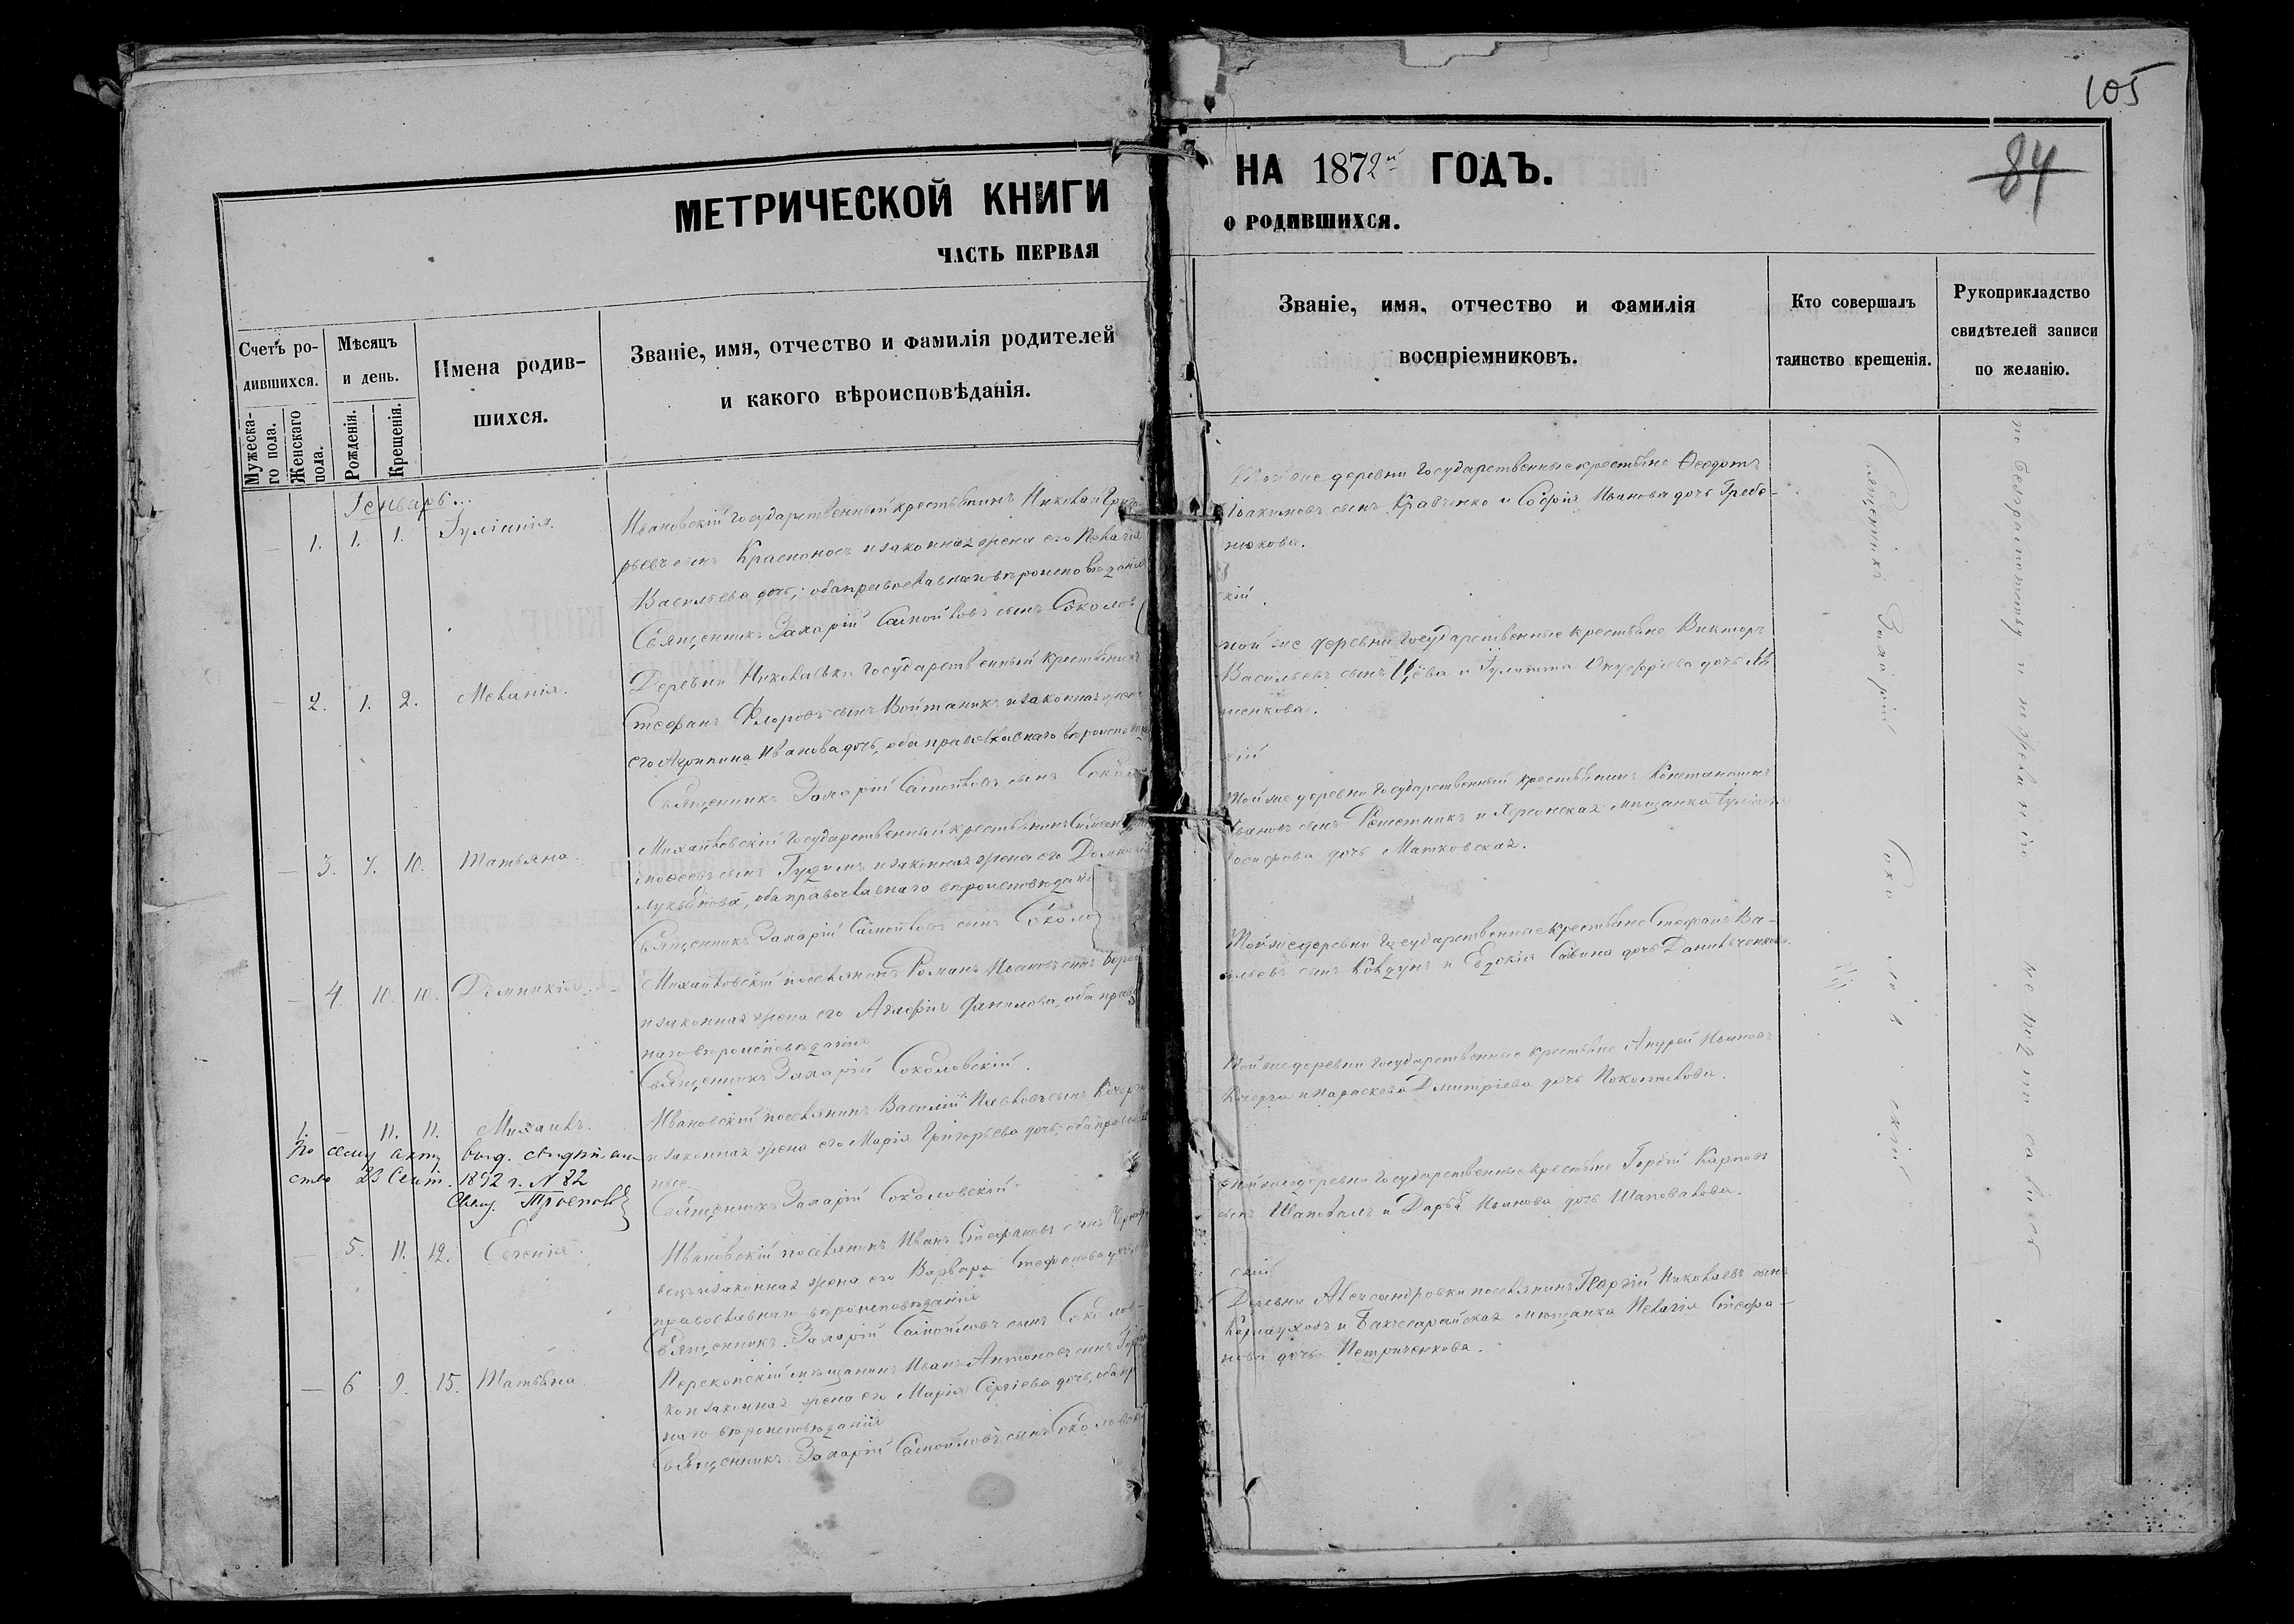 105
МЕТРИЧЕСКОЙ КНИГИ
НА 1872й ГОДЪ.
84
ЧАСТЬ ПЕРВАЯ
О РОДИВШИХСЯ.
Счетъ ро-
дившихся.
Мужеска-
го пола.
Женскаго
пола.
Мѣсяцъ
и день.
Рожденія.
Крещенія.
Имена родив-
шихся.
Званіе, имя, отчество и фамилія родителей
и какого вѣроисповѣданія.
Званіе, имя, отчество и фамилія
воспріемниковъ.
Кто совершалъ
таинство крещенія.
Рукоприкладство
свидѣтелей записи
по желанію.
Генварь
1. 1. 1. Іуліанія.
Ивановскій государственный крестьянинъ Николай Григо
рьевъ сынъ Красноносъ и законная жена его Пелагія
Васильева дочь, оба православнаго вѣроисповѣданія
Священникъ Захарій Самойловъ сынъ Соколов
Той же деревни государственные крестьяне Ѳеодотъ
Іоакимовъ сынъ Кравченко и Софія Иванова дочь Гребе-
нюкова.
скій
2. 1. 2. Меланія.
Деревни Николаевки государственный крестьянинъ
Стефанъ Флоровъ сынъ Войтаникъ и законная жена
его Агрипина Иванова дочь, оба православнаго вѣроиспов
Священникъ Захарій Самойловъ сынъ Соколо
той же деревни государственные крестьяне Викторъ
Васильевъ сынъ и Іулитта Онуфріева дочь
шенкова.
кій
3. 7. 10. Татьяна.
Михайловскій государственный крестьянинъ Симеонъ
моѳеевъ сынъ Гудимъ и законная жена его Домникія
Лукьянова, оба православнаго вѣроисповѣданія
Священникъ Захарій Самойловъ сынъ Соколов
Той же деревни государственный крестьянинъ Константинъ
Ивановъ сынъ Решетникъ и Херсонская мѣщанка
Іосифова дочь Матковская.
4. 10. 10. Домникія.
Михайловскій поселянинъ Романъ Ивановъ сынъ
и законная жена его Агафія Данилова, оба право
наго вѣроисповѣданія
Священникъ Захарій Соколовскій.
Той же деревни государственные крестьяне Стефанъ Ва-
сильевъ сынъ Ковдунъ и Евдокія Савина дочь Данильченкова.
1. 11. 11. Михаилъ.
По сему акту выд. свидѣтель-
ство 23 Сент. 1892 г. N 82
Свящ.
Ивановскій поселянинъ Василій Павловъ сынъ Кочерга
и законная жена его Марія Григорьева дочь, оба православ
ные.
Священникъ Захарій Соколовскій.
Той же деревни государственные крестьяне Андрей Ивановъ
Кочерга и Параскева Дмитріева дочь
5. 11. 12. Евгенія.
Ивановскій поселянинъ Иванъ Стефановъ сынъ
вецъ и законная жена его Варвара Стефанова дочь,
православнаго вѣроисповѣданія
Священникъ Захарій Самойловъ сынъ Соколов-
той же деревни государственные крестьяне Гордій Карповъ
сынъ Шаповалъ и Дарья Иванова дочь Шаповалова.
скій
6 9. 15. Татьяна
Перекопскій мѣщанинъ Иванъ Антоновъ сынъ
ко и законная жена его Марія Сергіева дочь, оба пр
наго вѣроисповѣданія
Священникъ Захарій Самойловъ сынъ Соколовск
Деревни Александровки поселянинъ Георгій Николаевъ сынъ
Карнауховъ и Бахчесарайская мѣщанка Пелагія Стефа-
нова дочь Петриченкова.
Священникъ Захарій Соколовскій.